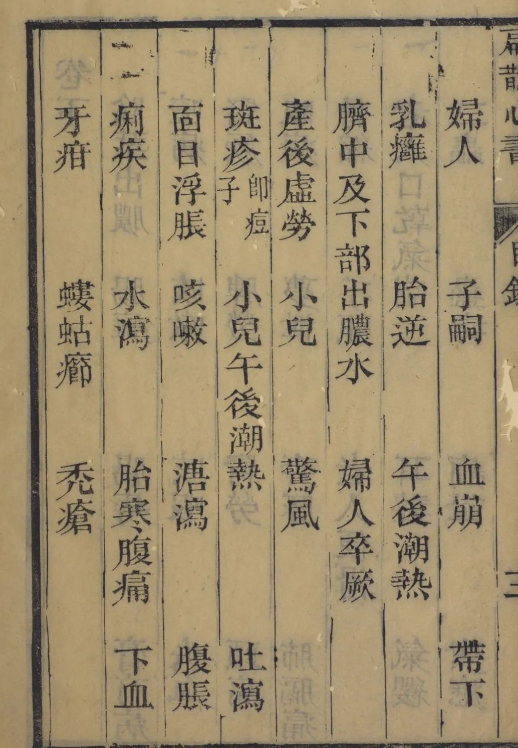 扁鵲心書 目錄 三
婦人 子嗣 血崩 帶下
乳癰 胎逆 午後潮熱
臍中及下部出膿水 婦人卒厥
產後虛勞 小兒 驚風
斑疹 卽痘子 小兒午後潮熱 吐瀉
面目浮脹 咳嗽 溏瀉 腹脹
痢疾 水瀉 胎寒腹痛 下血
牙疳 螻蛄癤 禿瘡